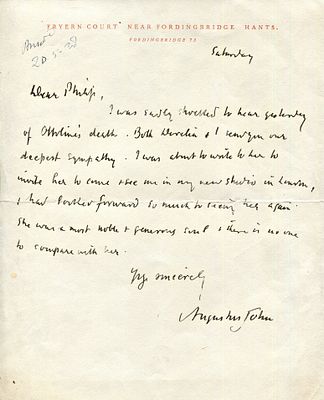 FRYERN COURT NEAR FORDINGBRIDGE HANTS.
FORDINGBRIDGE 73
Saturday
Dear Philip,
I was sadly shocked to hear yesterday
of Ottoline's death. Both Dorelia & I send you our
deepest sympathy. I was about to write to her to
invite her to come & see me in my new studio in London,
& had looked forward so much to seeing her again.
She was a most noble & generous soul & there is no one
to compare with her.
Yrs. sincerely
Augustus John